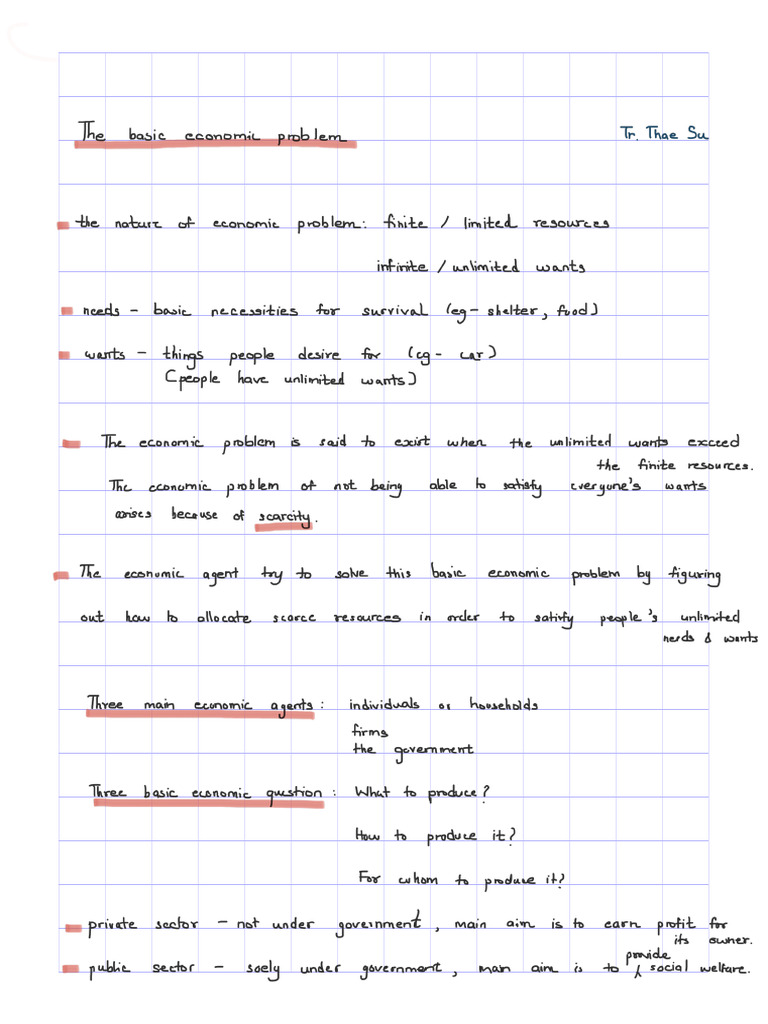 The basic economic problem
Tr. Thae Su
the nature of economic problem: finite / limited resources
infinite / unlimited wants
needs - basic necessities for survival (eg- shelter, food)
wants - things people desire for (eg- car)
(people have unlimited wants)
The economic problem is said to exist when the unlimited wants exceed
the finite resources.
The economic problem of not being able to satisfy everyone's wants
arises because of scarcity.
The economic agent try to solve this basic economic problem by figuring
out how to allocate scarce resources in order to satisfy people's unlimited
needs & wants
Three main economic agents: individuals or households
firms
the government
Three basic economic question: What to produce?
How to produce it?
For whom to produce it?
private sector - not under government, main aim is to earn profit for
its owner.
public sector - soely under government, main aim is to provide social welfare.